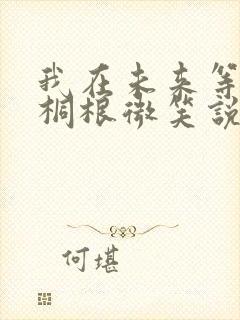 我在未来等
桐根微笑說
何堪